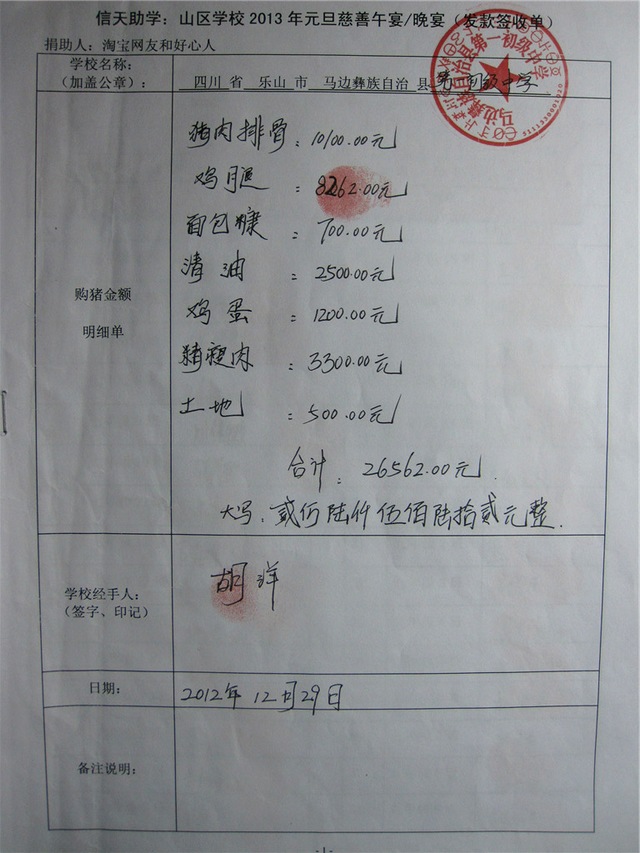 信天助学：山区学校2013年元旦慈善午宴/晚宴（发款签收单）
捐助人：淘宝网友和好心人
学校名称：
（加盖公章）：
四川 省 乐山 市 马边彝族自治 县 第一初级中学
马边彝族自治县第一初级中学
购猪金额
明细单
猪肉排骨：10100.00元
鸡腿：8262.00元
面包糠：700.00元
清油：2500.00元
鸡蛋：1200.00元
猪瘦肉：3300.00元
土地：500.00元
合计：26562.00元
大写：贰仟陆仟伍佰陆拾贰元整.
学校经手人：
（签字、印记）
胡洋
日期：
2012年12月29日
备注说明：